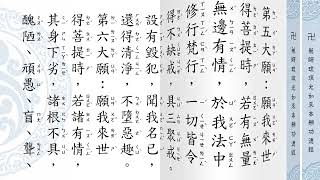 卍 藥師琉璃光如來本願功德經
卍 藥師琉璃光如來本願功德經
第五大願：願我來世
得菩提時，若有無量
無邊有情，於我法中
修行梵行，一切皆令
得不缺戒，具三聚戒。
設有毀犯，聞我名已，
還得清淨，不墮惡趣。
第六大願：願我來世
得菩提時，若諸有情，
其身下劣，諸根不具，
醜陋、頑愚、盲、聾、